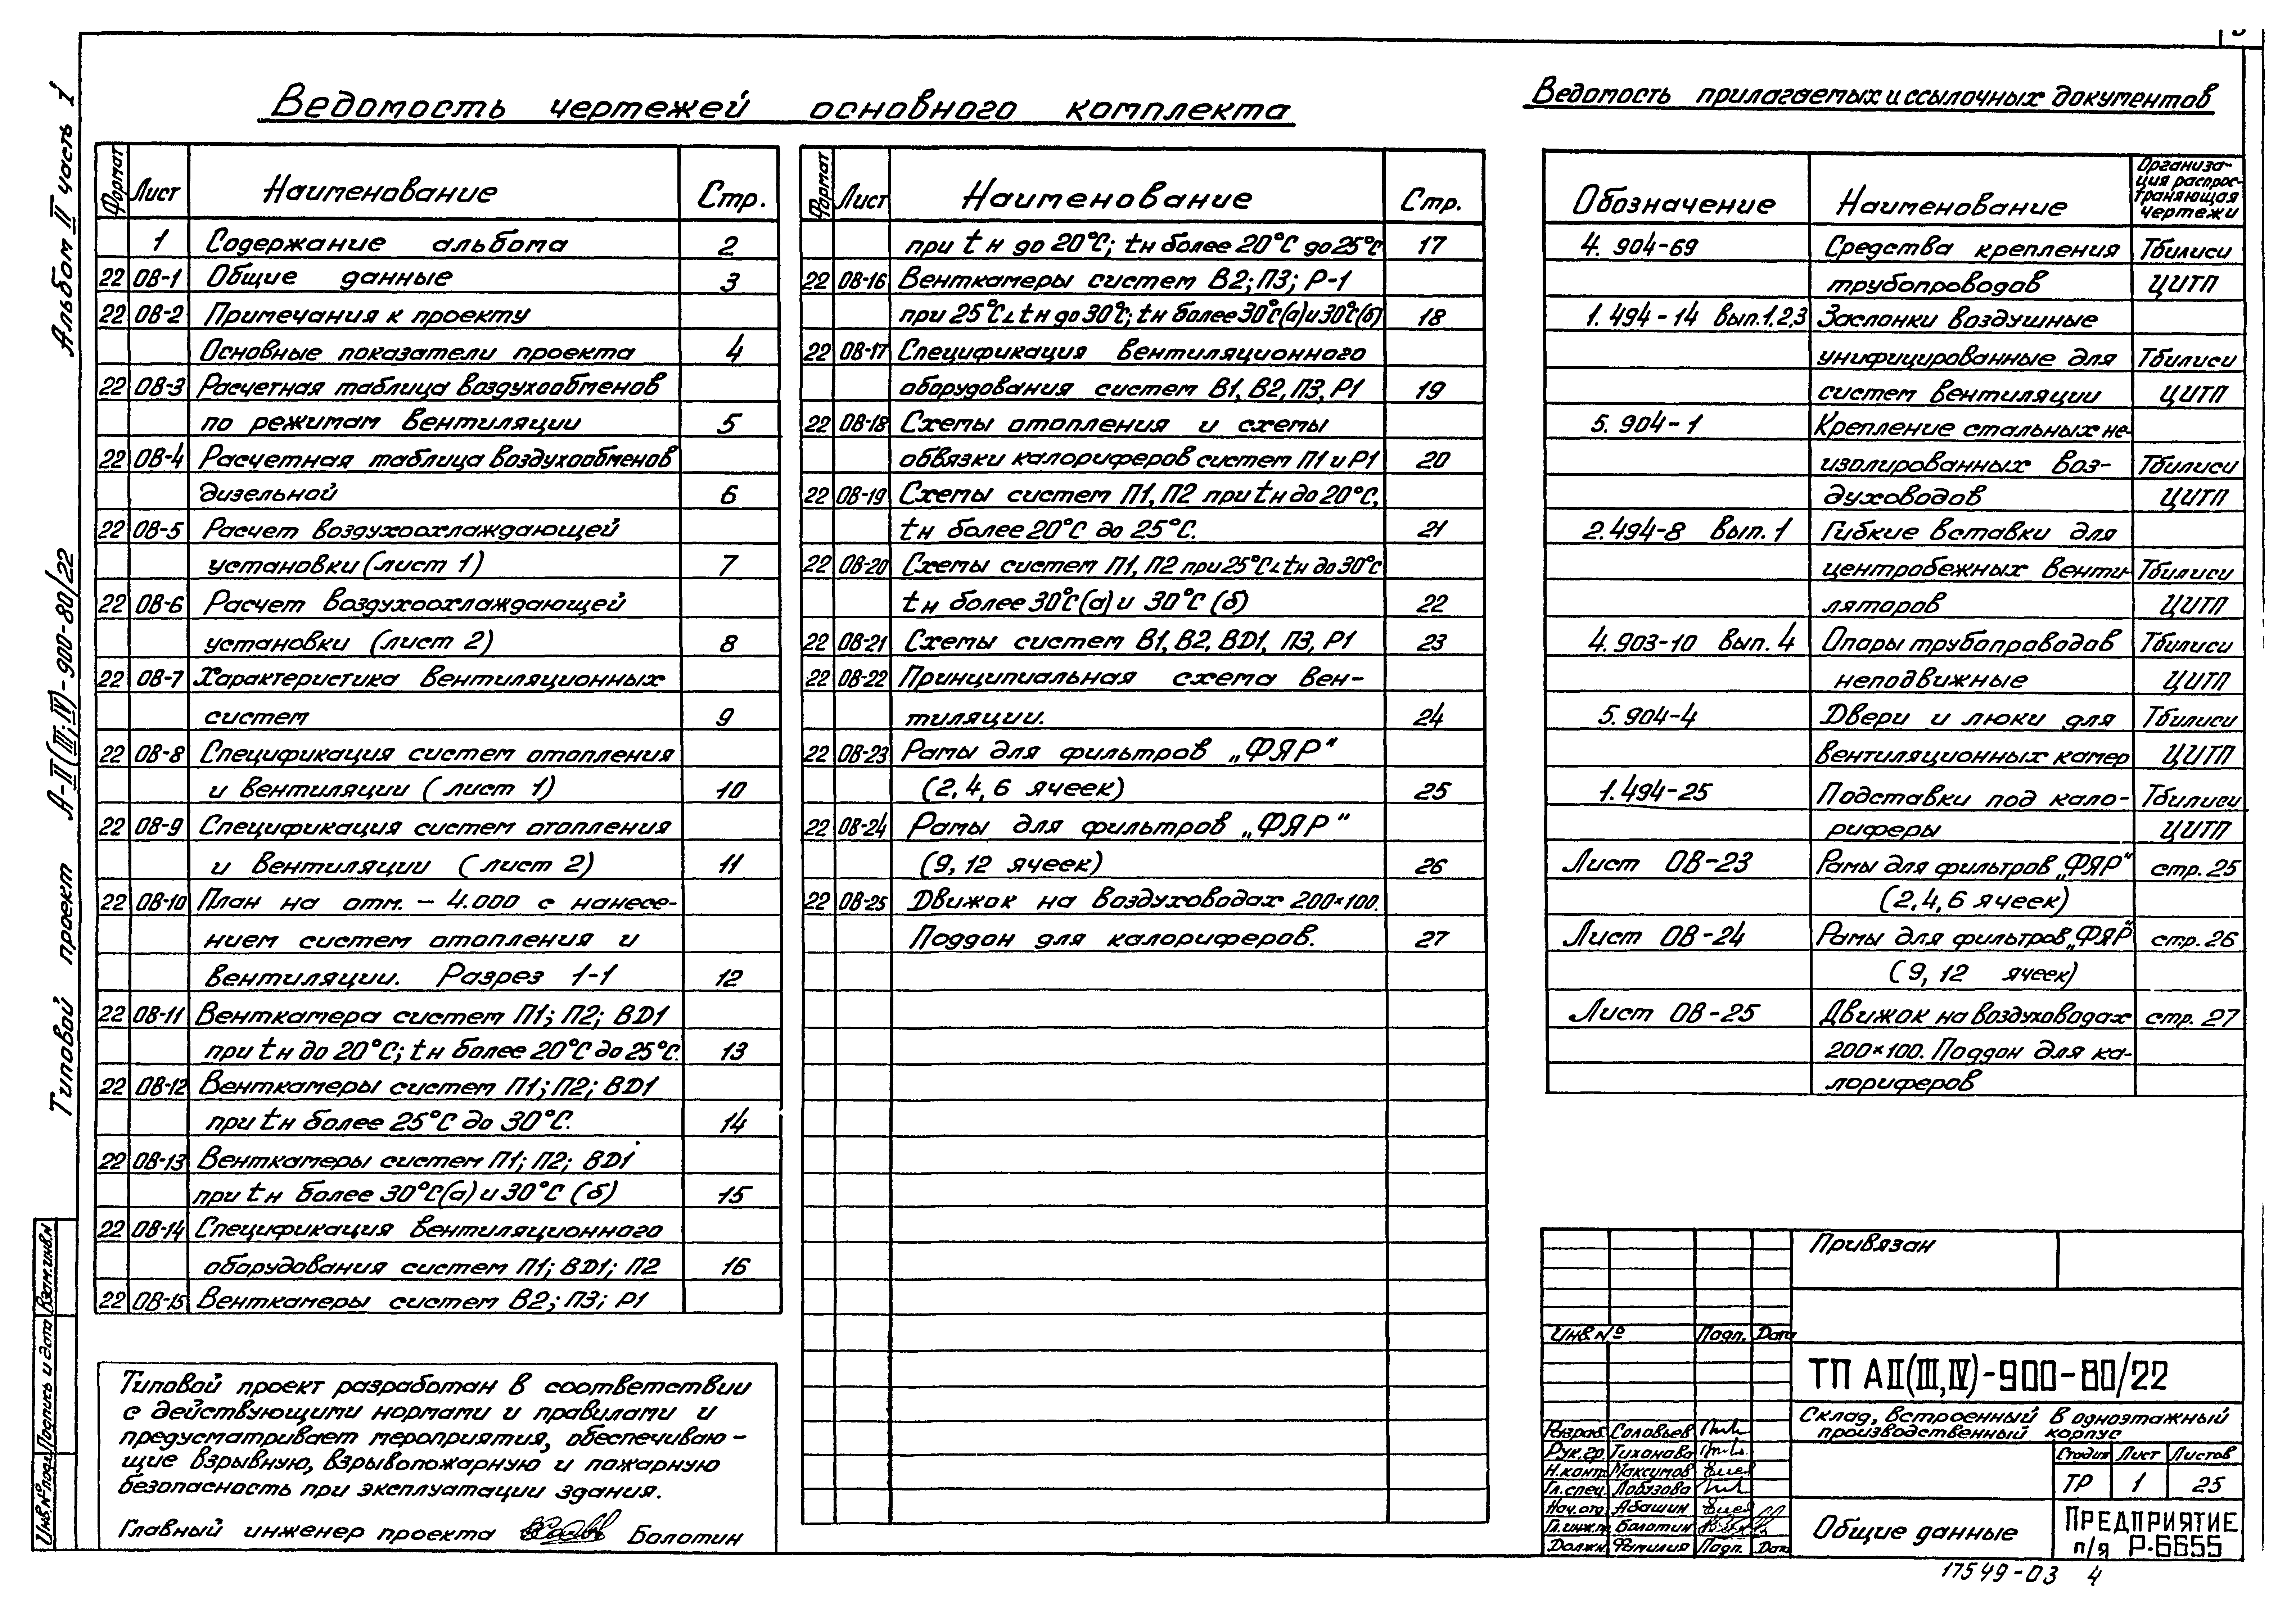 Ведомость чертежей основного комплекта
Формат Лист Наименование Стр.
1 Содержание альбома 2
22 ОВ-1 Общие данные 3
22 ОВ-2 Примечания к проекту
Основные показатели проекта 4
22 ОВ-3 Расчетная таблица воздухообменов
по режимам вентиляции 5
22 ОВ-4 Расчетная таблица воздухообменов
дизельной 6
22 ОВ-5 Расчет воздухоохлаждающей
установки (лист 1) 7
22 ОВ-6 Расчет воздухоохлаждающей
установки (лист 2) 8
22 ОВ-7 Характеристика вентиляционных
систем 9
22 ОВ-8 Спецификация систем отопления
и вентиляции (лист 1) 10
22 ОВ-9 Спецификация систем отопления
и вентиляции (лист 2) 11
22 ОВ-10 План на отм. – 4.000 с нанесе-
нием систем отопления и
вентиляции. Разрез 1-1 12
22 ОВ-11 Венткамера систем П1; П2; ВD1
при tн до 20°С; tн более 20°С до 25°С. 13
22 ОВ-12 Венткамеры систем П1; П2; ВD1
при tн более 25°С до 30°С. 14
22 ОВ-13 Венткамеры систем П1; П2; ВD1
при tн более 30°С(а) и 30°С (б) 15
22 ОВ-14 Спецификация вентиляционного
оборудования систем П1; ВD1; П2 16
22 ОВ-15 Венткамеры систем В2; П3; Р1
Формат Лист Наименование Стр.
при tн до 20°С; tн более 20°С до 25°С 17
22 ОВ-16 Венткамеры систем В2; П3; Р-1
при 25°С < tн до 30°С; tн более 30°С(а) и 30°С(б) 18
22 ОВ-17 Спецификация вентиляционного
оборудования систем В1, В2, П3, Р1 19
22 ОВ-18 Схемы отопления и схемы
обвязки калориферов систем П1 и Р1 20
22 ОВ-19 Схемы систем П1, П2 при tн до 20°С,
tн более 20°С до 25°С. 21
22 ОВ-20 Схемы систем П1, П2 при 25°С < tн до 30°С
tн более 30°С(а) и 30°С (б) 22
22 ОВ-21 Схемы систем В1, В2, ВD1, П3, Р1 23
22 ОВ-22 Принципиальная схема вен-
тиляции. 24
22 ОВ-23 Рамы для фильтров „ФЯР"
(2, 4, 6 ячеек) 25
22 ОВ-24 Рамы для фильтров „ФЯР"
(9, 12 ячеек) 26
22 ОВ-25 Движок на воздуховодах 200×100.
Поддон для калориферов. 27
Ведомость прилагаемых и ссылочных документов
Обозначение Наименование Организа-
ция распрос-
траняющая
чертежи
4. 904-69 Средства крепления Тбилиси
трубопроводов ЦИТП
1. 494-14 вып. 1, 2, 3 Заслонки воздушные
унифицированные для Тбилиси
систем вентиляции ЦИТП
5. 904-1 Крепление стальных не-
изолированных воз- Тбилиси
духоводов ЦИТП
2. 494-8 Вып. 1 Гибкие вставки для
центробежных венти- Тбилиси
ляторов ЦИТП
4. 903-10 Вып. 4 Опоры трубопроводов Тбилиси
неподвижные ЦИТП
5. 904-4 Двери и люки для Тбилиси
вентиляционных камер ЦИТП
1. 494-25 Подставки под кало- Тбилиси
риферы ЦИТП
Лист ОВ-23 Рамы для фильтров „ФЯР" стр. 25
(2, 4, 6 ячеек)
Лист ОВ-24 Рамы для фильтров „ФЯР" стр. 26
(9, 12 ячеек)
Лист ОВ-25 Движок на воздуховодах стр. 27
200×100. Поддон для ка-
лориферов
Типовой проект разработан в соответствии
с действующими нормами и правилами и
предусматривает мероприятия, обеспечиваю-
щие взрывную, взрывопожарную и пожарную
безопасность при эксплуатации здания.
Главный инженер проекта Болотин
Привязан
Инв. № Подп. Дата
ТП АII(III,IV)-900-80/22
Склад, встроенный в одноэтажный
производственный корпус
Разраб. Соловьев
Рук.гр. Тихонова
Н.контр. Максимов
Гл.спец. Лобызова
Нач.отд. Абашин
Гл.инж.п. Болотин
Должн. Фамилия Подп. Дата
Стадия Лист Листов
ТР 1 25
Общие данные
Предприятие
п/я Р-6655
17549-03 4
Типовой проект А-II(III;IV)-900-80/22 Альбом II часть 1
Инв.№ подл. Подпись и дата Взам.инв.№